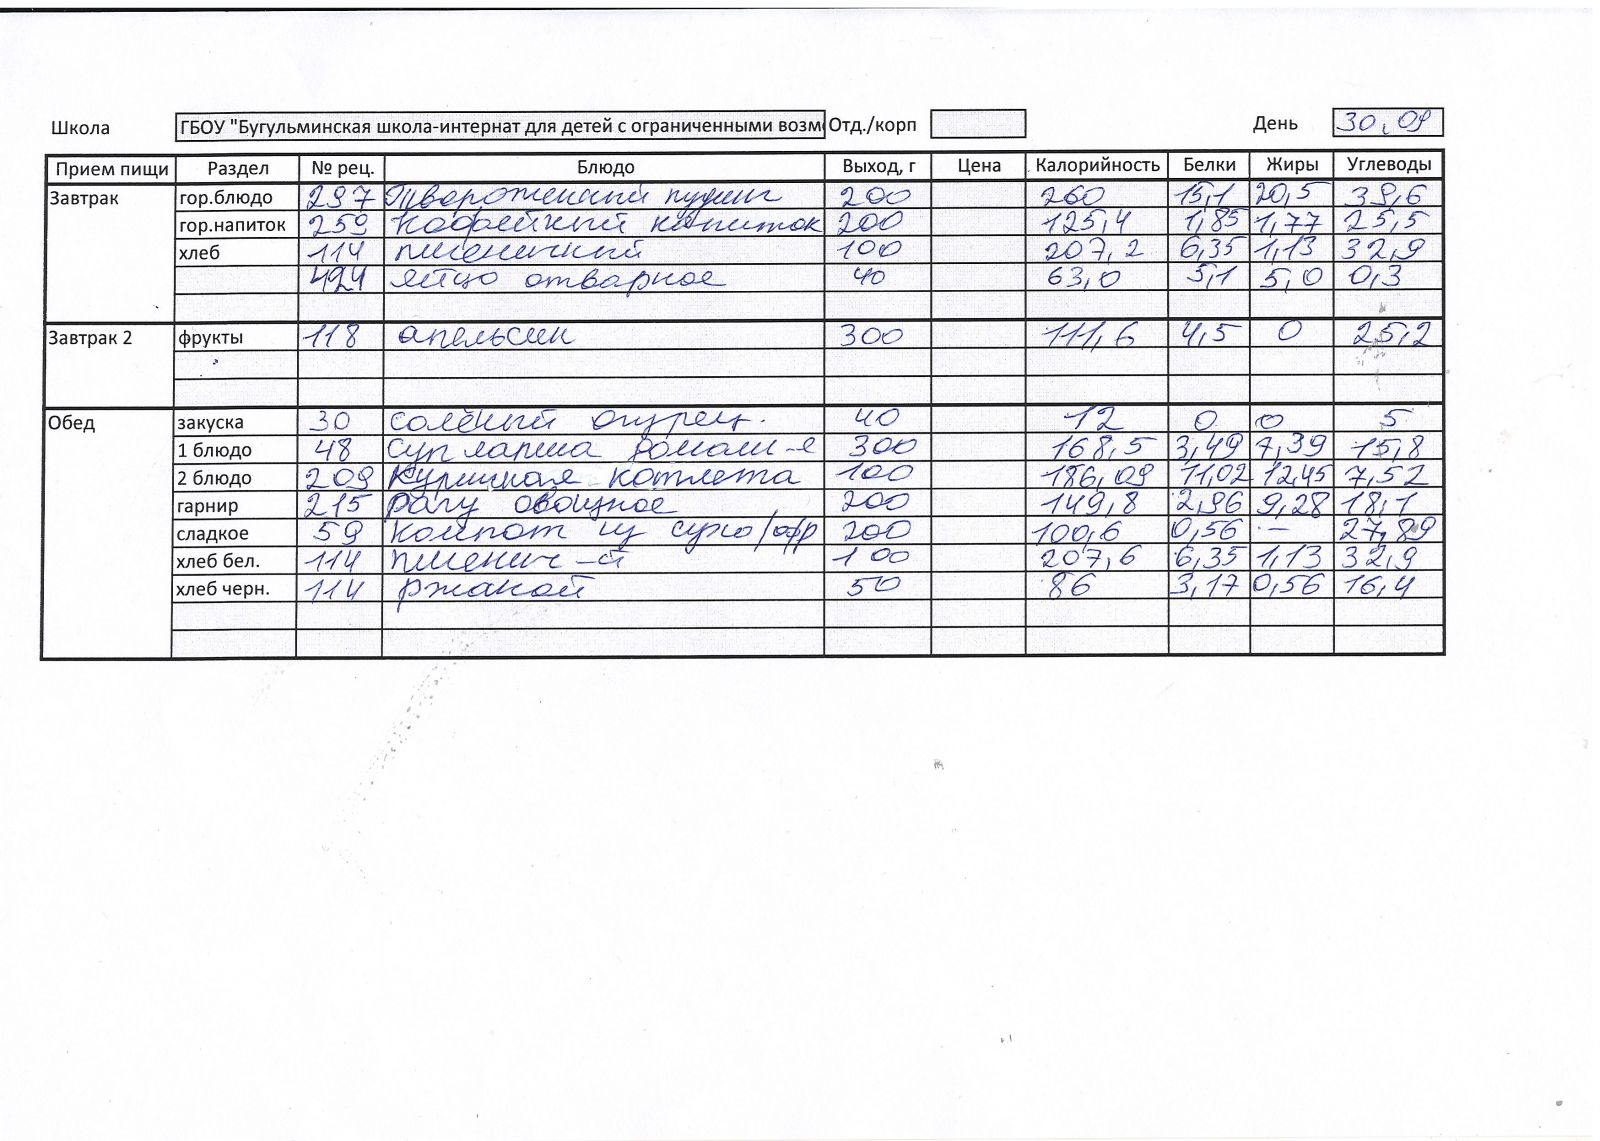 Школа ГБОУ "Бугульминская школа-интернат для детей с ограниченными возм Отд./корп День 30.09
Прием пищи Раздел № рец. Блюдо Выход, г Цена Калорийность Белки Жиры Углеводы
Завтрак гор.блюдо 297 Твороженный пудинг 200 260 15,1 20,5 39,6
гор.напиток 259 Кофейный напиток 200 125,4 1,85 1,77 25,5
хлеб 114 пшеничный 100 207,2 6,35 1,13 32,9
424 яйцо отварное 40 63,0 5,1 5,0 0,3
Завтрак 2 фрукты 118 апельсин 300 111,6 4,5 0 25,2
Обед закуска 30 солёный огурец. 40 12 0 0 5
1 блюдо 48 Суп лапша домаш-я 300 168,5 3,49 7,39 15,8
2 блюдо 209 Куриная котлета 100 186,09 11,02 12,45 7,52
гарнир 215 рагу овощное 200 149,8 2,96 9,28 18,1
сладкое 59 Компот из сухо/фр 200 100,6 0,56 - 27,89
хлеб бел. 114 пшенич-й 100 207,6 6,35 1,13 32,9
хлеб черн. 114 ржаной 50 86 3,17 0,56 16,4